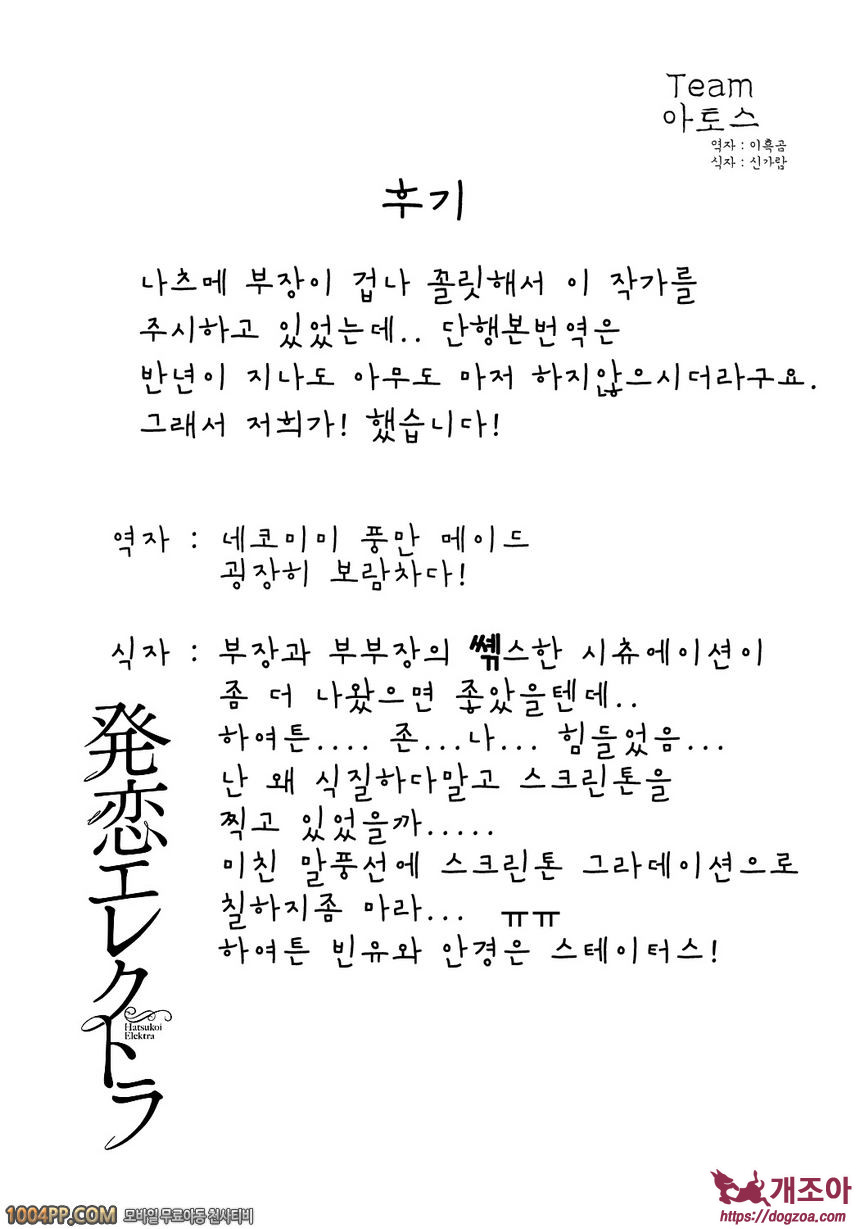 Team
아토스
역자 : 이흑곰
식자 : 신가람
후기
나츠메 부장이 겁나 꼴릿해서 이 작가를
주시하고 있었는데.. 단행본번역은
반년이 지나도 아무도 마저 하지않으시더라구요.
그래서 저희가! 했습니다!
역자 : 네코미미 풍만 메이드
굉장히 보람차다!
식자 : 부장과 부부장의 쎾스한 시츄에이션이
좀 더 나왔으면 좋았을텐데..
하여튼.... 존...나... 힘들었음...
난 왜 식질하다말고 스크린톤을
찍고 있었을까.....
미친 말풍선에 스크린톤 그라데이션으로
칠하지좀 마라... ㅠㅠ
하여튼 빈유와 안경은 스테이터스!
発恋エレクトラ
Hatsukoi
Elektra
1004PP.COM 모바일 무료야동 천사티비
개조아
https://dogzoa.com